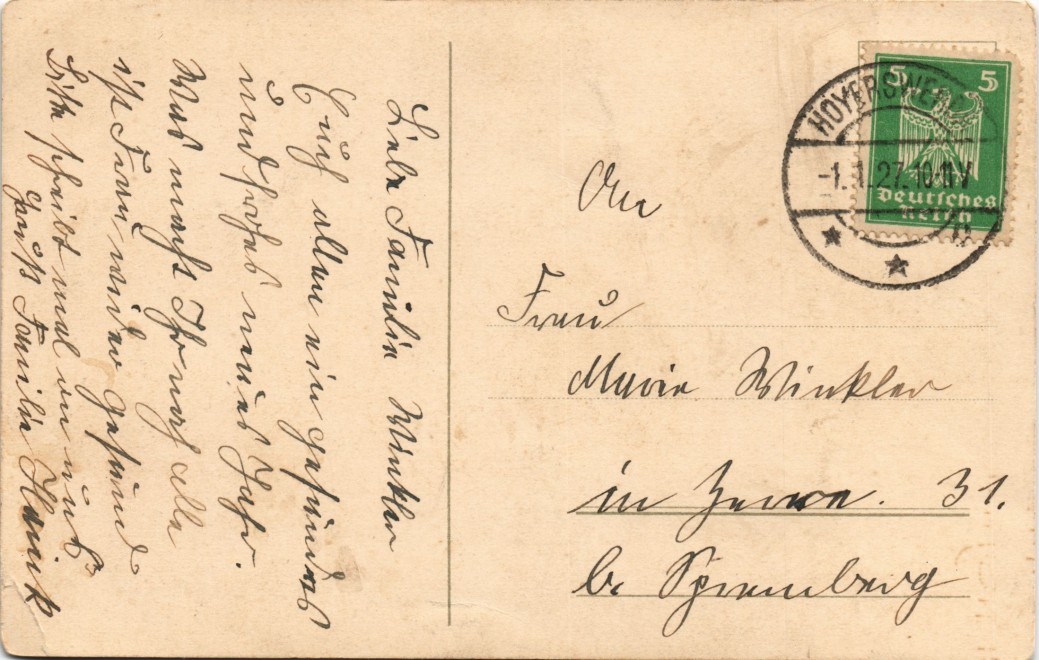 Liebe Familie Winkler
Euch allen ein gesundes
und frohes neues Jahr.
Was macht Ihr noch alle
ist Frau wieder gesund
Bitte schreibt mal an uns
Gruß Familie
HOYERSWERDA
-1.1.27.10-11V
5 5
Deutsches
Reich
An
Frau
Marie Winkler
in Zerre. 31.
b. Spremberg